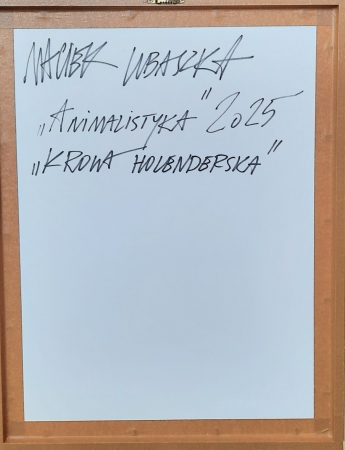 MACIEK LUBASZKA
„ANIMALISTYKA” 2025
„KROWA HOLENDERSKA”